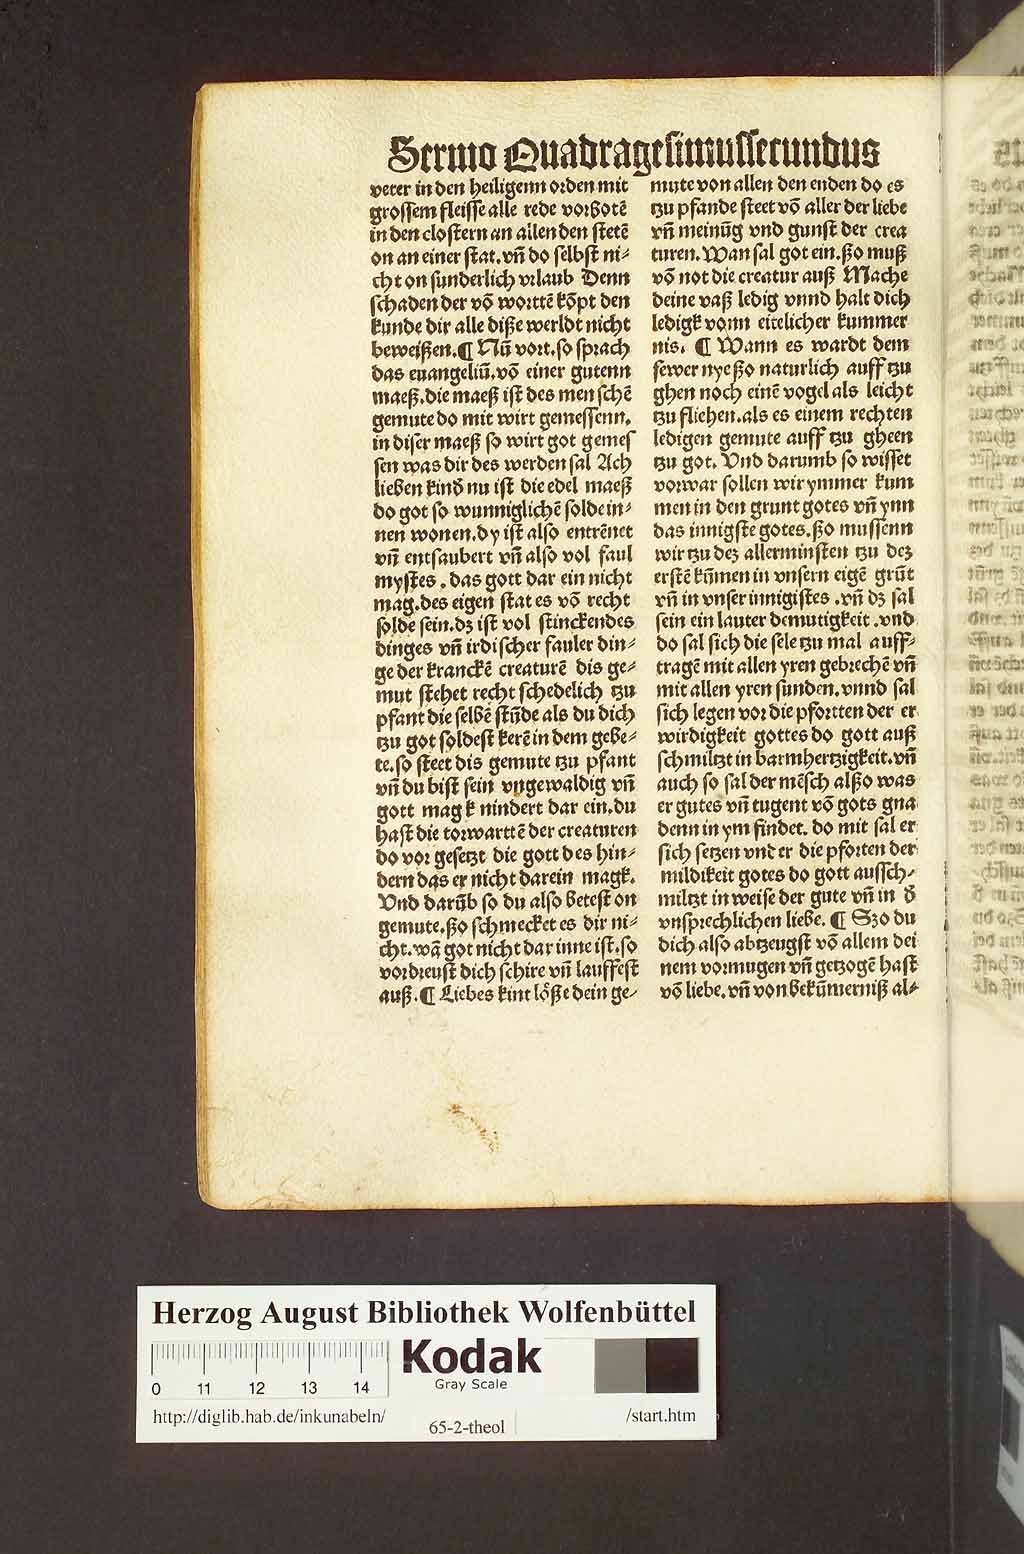 Sermo Quadragesimussecundus
veter in den heiligenn orden mit
grossem fleisse alle rede vorbotē
in den clostern an allen den stetē
on an einer stat. vñ do selbst ni⸗
cht on sunderlich vrlaub Denn
schaden der vō worttē kōpt den
kunde dir alle diße werldt nicht
beweißen. ¶ Nū vort. so sprach
das euangeliū. vō einer gutenn
maeß. die maeß ist des menschē
gemute do mit wirt gemessenn.
in diser maeß so wirt got gemes
sen was dir des werden sal Ach
lieben kinð nu ist die edel maeß
do got so wunniglichē solde in⸗
nen wonen. dy ist also entrēnet
vñ entsaubert vñ also vol faul
mystes. das gott dar ein nicht
mag. des eigen stat es vō recht
solde sein. dz ist vol stinckendes
dinges vñ irdischer fauler din⸗
ge der kranckē creaturē dis ge⸗
mut stehet recht schedelich tzu
pfant die selbē stūde als du dich
tzu got soldest kerē in dem gebe⸗
te. so steet dis gemute tzu pfant
vñ du bist sein vngewaldig vñ
gott magk nindert dar ein. du
hast die torwarttē der creaturen
do vor gesetzt die gott des hin⸗
dern das er nicht darein magk.
Vnd darūb so du also betest on
gemute. ßo schmecket es dir ni⸗
cht. wā got nicht dar inne ist. so
vordreust dich schire vñ lauffest
auß. ¶ Liebes kint lößze dein ge⸗
mute von allen den enden do es
tzu pfande steet vō aller der liebe
vñ meinūg vnd gunst der crea
turen. Wan sal got ein. ßo muß
vō not die creatur auß Mache
deine vaß ledig vnnd halt dich
ledigk vonn eitelicher kummer
nis. ¶ Wann es wardt dem
fewer nye ßo naturlich auff tzu
ghen noch einē vogel als leicht
tzu fliehen. als es einem rechten
ledigen gemute auff tzu gheen
tzu got. Vnd darumb so wisset
vorwar sollen wir ymmer kum
men in den grunt gotes vñ ynn
das innigste gotes. ßo mussenn
wir tzu dez allerminsten tzu dez
erstē kūmen in vnsern eigē grūt
vñ in vnser innigistes. vñ dz sal
sein ein lauter demutigkeit. vnd
do sal sich die sele tzu mal auff⸗
tragē mit allen yren gebrechē vñ
mit allen yren sunden. vnnd sal
sich legen vor die pfortten der er
wirdigkeit gottes do gott auß
schmiltzt in barmhertzigkeit. vñ
auch so sal der mēsch alßo was
er gutes vñ tugent vō gots gna
denn in ym findet. do mit sal er
sich setzen vnder die pforten der
mildikeit gotes do gott aussch⸗
miltzt in weise der gute vñ in ð
vnsprechlichen liebe. ¶ Szo du
dich also abtzeugst vō allem dei
nem vormugen vñ getzogē hast
vō liebe. vñ von bekūmerniß al⸗
Herzog August Bibliothek Wolfenbüttel
0 11 12 13 14
Kodak
Gray Scale
http://diglib.hab.de/inkunabeln/
65-2-theol
/start.htm